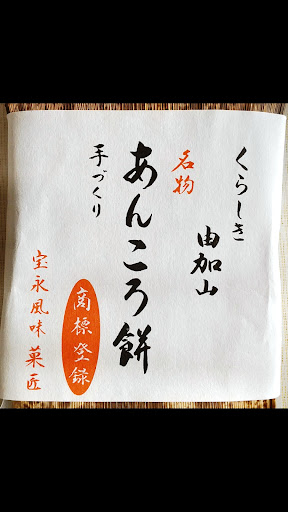 くらしき
由加山
名物
あんころ餅
手づくり
商標登録
宝永風味菓匠